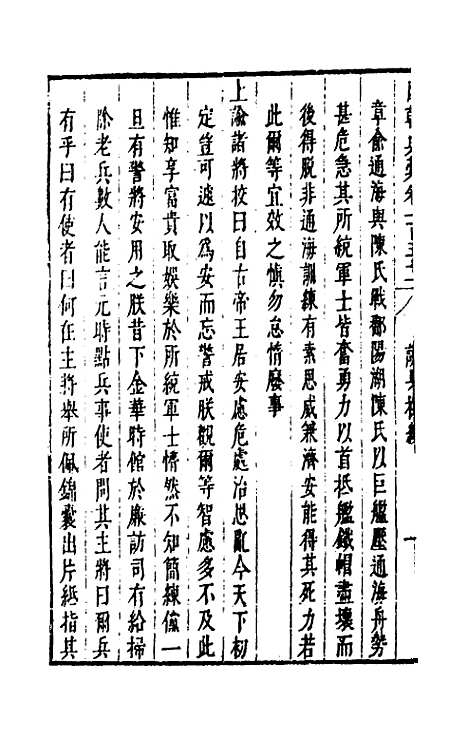 章俞通海與陳氏戰鄱陽湖陳氏以巨艦壓通海舟勢
甚危急其所統軍士皆奮勇力以首抵艦鐵帽盡壞而
後得脫非通海訓練有素恩威兼濟安能得其死力若
此爾等宜效之慎勿怠惰廢事
上諭諸將校曰自古帝王居安慮危處治思亂今天下初
定豈可遽以為安而忘警戒朕觀爾等智慮多不及此
惟知享富貴取娛樂於所統軍士懵然不知簡練儻一
旦有警將安用之朕昔下金華時館於廉訪司有給掃
除老兵數人能言元時點兵事使者問其主將曰爾兵
有乎曰有使者曰何在主將舉所佩錦囊出片紙指其